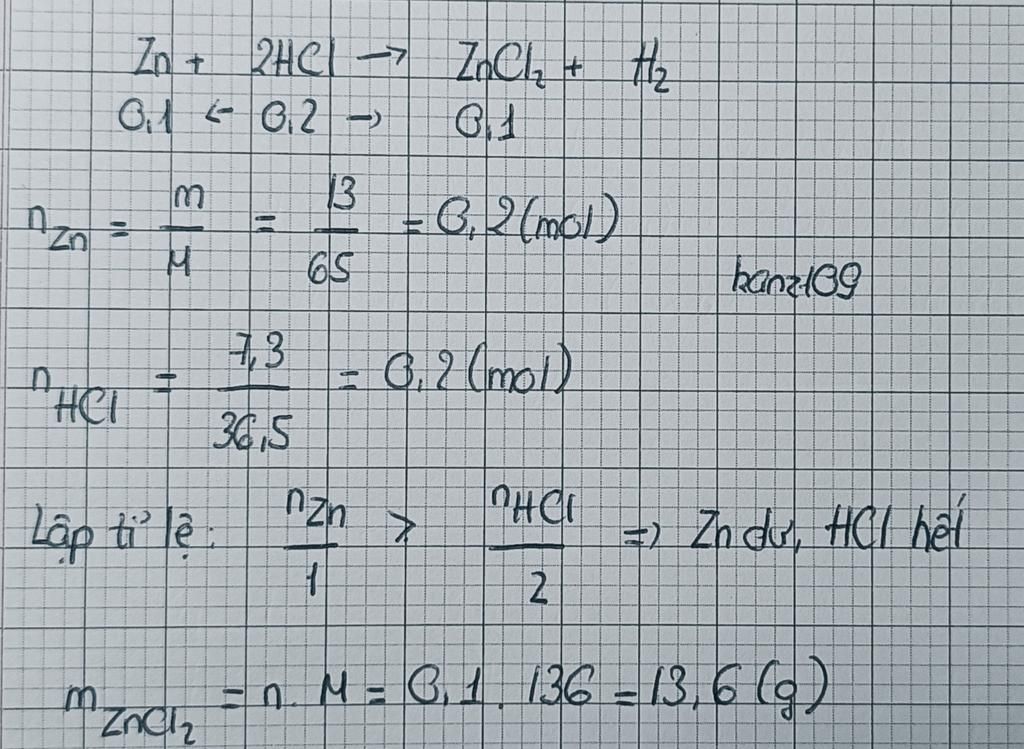 Zn + 2HCl → ZnCl₂ + H₂
0,1 ← 0,2 → 0,1
n_Zn = m/M = 13/65 = 0,2 (mol)
kanz109
n_HCl = 7,3/36,5 = 0,2 (mol)
Lập tỉ lệ: n_Zn/1 > n_HCl/2 => Zn dư, HCl hết
m_ZnCl₂ = n. M = 0,1. 136 = 13,6 (g)